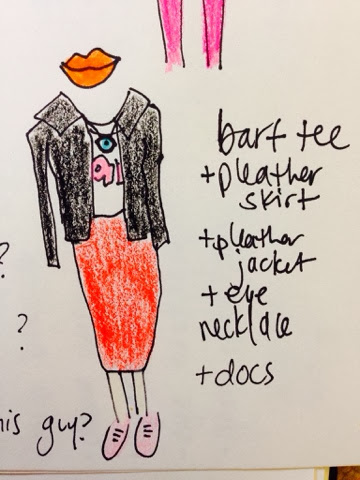 bart tee
+pleather
skirt
+pleather
jacket
+eye
necklace
+docs
?
?
his guy?